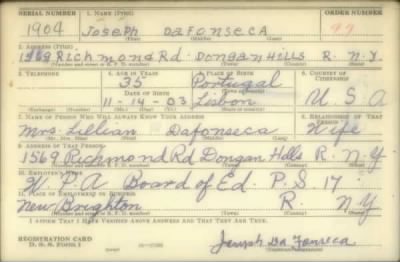 SERIAL NUMBER 1. NAME (Print) ORDER NUMBER
1904 Joseph DaFonseca 97
(First) (Middle) (Last)
2. ADDRESS (Print)
1569 Richmond Rd Dongan Hills R. N.Y
(Number and street or R. F. D. number) (Town) (County) (State)
3. TELEPHONE 4. AGE IN YEARS 5. PLACE OF BIRTH 6. COUNTRY OF CITIZENSHIP
35 Portugal
DATE OF BIRTH
11-14-03 Lisbon U.S.A
(Exchange) (Number) (Mo.) (Day) (Yr.) (Town or county) (State or country)
7. NAME OF PERSON WHO WILL ALWAYS KNOW YOUR ADDRESS 8. RELATIONSHIP OF THAT PERSON
Mrs. Lillian Dafonseca Wife
(Mr., Mrs., Miss) (First) (Middle) (Last)
9. ADDRESS OF THAT PERSON
1569 Richmond Rd Dongan Hills R. N.Y
(Number and street or R. F. D. number) (Town) (County) (State)
10. EMPLOYER'S NAME
W.P.A. Board of Ed. P.S 17
11. PLACE OF EMPLOYMENT OR BUSINESS
New Brighton R. NY
(Number and street or R. F. D. number) (Town) (County) (State)
I AFFIRM THAT I HAVE VERIFIED ABOVE ANSWERS AND THAT THEY ARE TRUE.
REGISTRATION CARD
D. S. S. Form 1 Joseph Da Fonseca